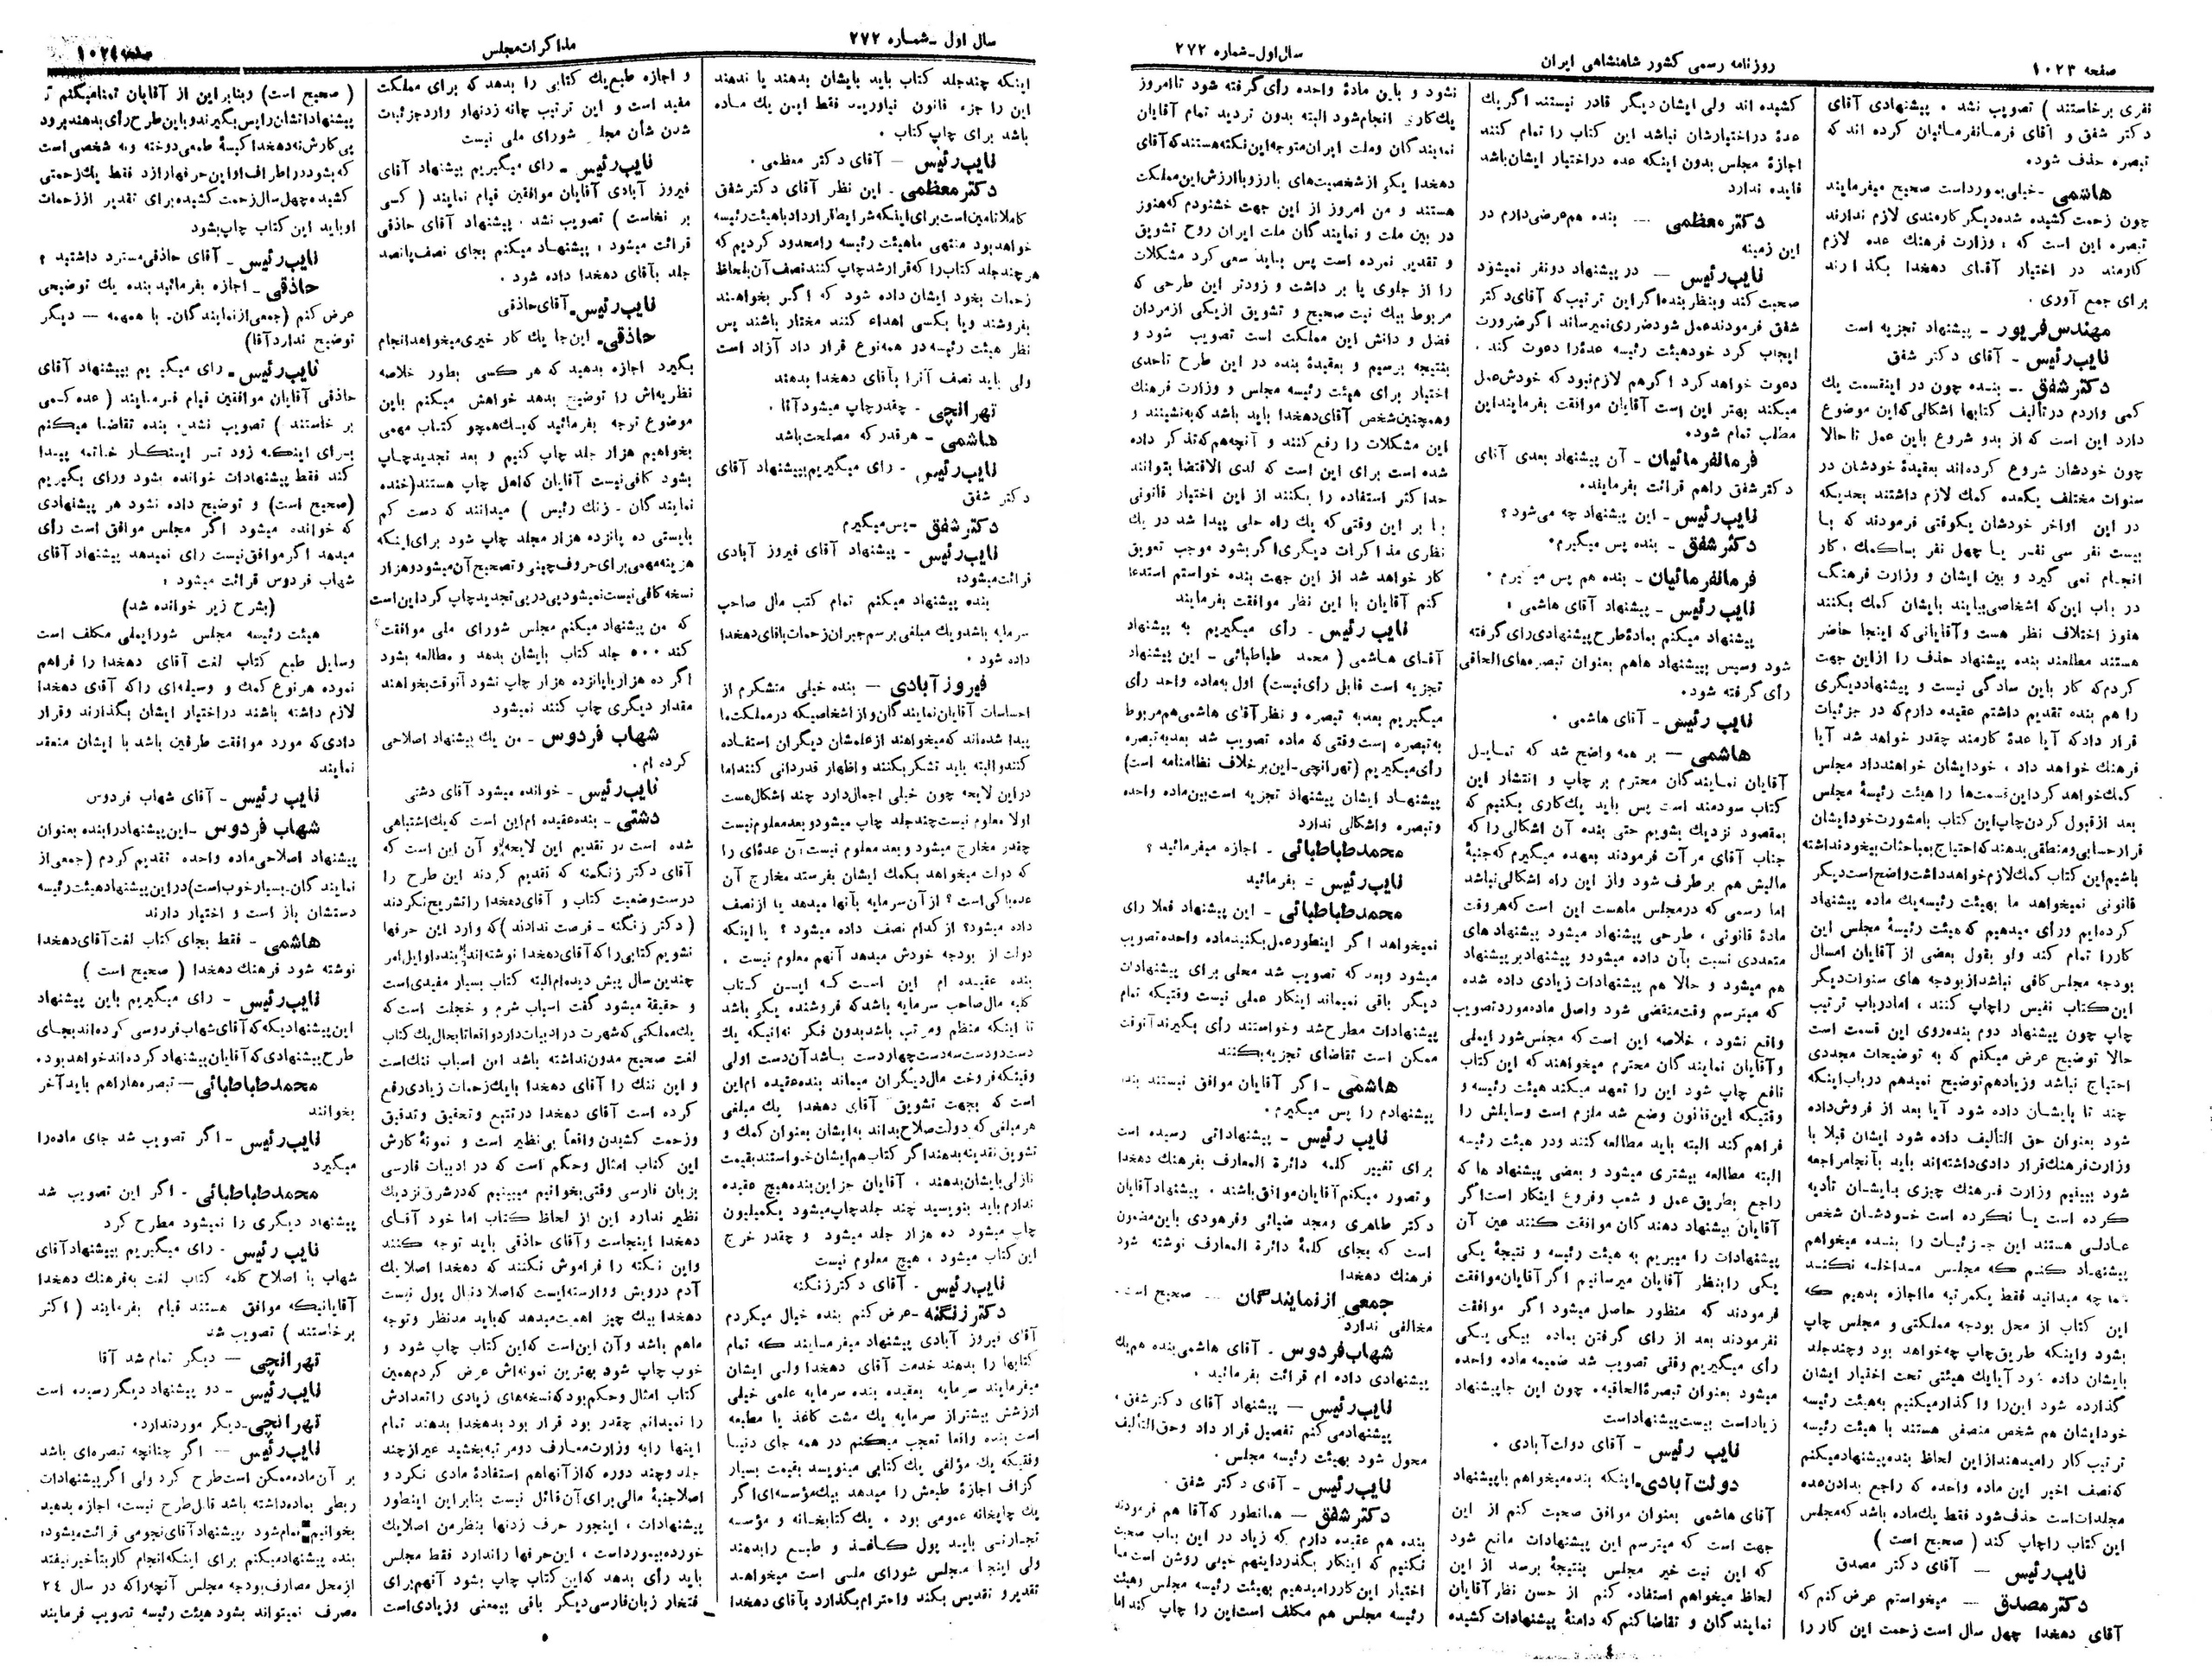 صفحه ۱۰۲۳
روزنامه رسمی کشور شاهنشاهی ایران
سال اول-شماره ۲۷۲
نفری برخاستند ) تصویب نشد . پیشنهادی آقای
دکتر شفق و آقای فرمانفرمائیان کرده اند که
تبصره حذف شود.
هاشمی -خیلی بمورداست صحیح میفرمایند
چون زحمت کشیده شده دیگر کارمندی لازم ندارند
تبصره این است که : وزارت فرهنگ عده لازم
کارمند در اختیار آقای دهخدا بگذارند
برای جمع آوری .
مهندس فریور - پیشنهاد تجزیه است
نایب رئیس - آقای دکتر شفق
دکتر شفق - بنده چون در اینقسمت یك
کمی واردم در تألیف کتابها اشکالی که این موضوع
دارد این است که از بدو شروع باین عمل تا حالا
چون خودشان شروع کرده‌اند بعقیدهٔ خودشان در
سنوات مختلف یکعده کمك لازم داشتند بحدیکه
در این اواخر خودشان یکوقتی فرمودند که با
بیست نفر سی نفر یا چهل نفر باکمك ، کار
انجام نمی گیرد و بین ایشان و وزارت فرهنگ
در باب این‌که اشخاصی بیایند بایشان کمك بکنند
هنوز اختلاف نظر هست و آقایانی‌که اینجا حاضر
هستند مطلعند بنده پیشنهاد حذف را از این جهت
کردم‌که کار باین سادگی نیست و پیشنهاد دیگری
را هم بنده تقدیم داشتم عقیده دارم‌که در جزئیات
قرار داد‌که آیا عدهٔ کارمند چقدر خواهد شد آیا
فرهنگ خواهد داد ، خودایشان خواهند داد مجلس
کمك خواهد کرد این قسمت‌ها را هیئت رئیسهٔ مجلس
بعد از قبول کردن چاپ این کتاب با مشورت خود ایشان
قرار حسابی و منطقی بدهند که احتیاج بمباحثات بیخود نداشته
باشیم این کتاب کمك لازم خواهد داشت واضح است دیگر
قانونی نمیخواهد ما بهیئت رئیسه یك ماده پیشنهاد
کرده‌ایم و رای میدهیم که هیئت رئیسهٔ مجلس این
کار را تمام کند ولو بقول بعضی از آقایان امسال
بودجه مجلس کافی نباشد از بودجه های سنوات دیگر
این کتاب نفیس را چاپ کنند ، اما در باب ترتیب
چاپ چون پیشنهاد دوم بنده روی این قسمت است
حالا توضیح عرض میکنم که به توضیحات مجددی
احتیاج نباشد و زیاد هم توضیح نمیدهم در باب اینکه
چند تا بایشان داده شود آیا بعد از فروش داده
شود بعنوان حق التألیف داده شود ایشان قبلا با
وزارت فرهنگ قرار دادی داشته‌اند باید بآنجا مراجعه
شود ببینیم وزارت فرهنگ چیزی بایشان تأدیه
کرده است یا نکرده است خودشان شخص
عادلی هستند این جزئیات را بنده میخواهم
پیشنهاد کنم که مجلس مداخله نکند
شما چه میدانید فقط یکمرتبه ما اجازه بدهیم که
این کتاب از محل بودجه مملکتی و مجلس چاپ
بشود و اینکه طریق چاپ چه خواهد بود و چند جلد
بایشان داده شود آیا یك هیئتی تحت اختیار ایشان
گذارده شود این‌را واگذار میکنیم به هیئت رئیسه
خودایشان هم شخص منصفی هستند با هیئت رئیسه
ترتیب کار را میدهند از این لحاظ بنده پیشنهاد میکنم
که نصف اخیر این ماده واحده که راجع بدادن عده
مجلدات است حذف شود فقط یك ماده باشد که مجلس
این کتاب را چاپ کند ( صحیح است )
نایب رئیس — آقای دکتر مصدق
دکتر مصدق — میخواستم عرض کنم که
آقای دهخدا چهل سال است زحمت این کار را
کشیده اند ولی ایشان دیگر قادر نیستند اگر یك
عدهٔ در اختیارشان نباشد این کتاب را تمام کنند
اجازهٔ مجلس بدون اینکه عده در اختیار ایشان باشد
فایده ندارد
دکتر معظمی — بنده هم عرضی دارم در
این زمینه
نایب رئیس — در پیشنهاد دو نفر نمیشود
صحبت کند و بنظر بنده اگر این ترتیب که آقای دکتر
شفق فرمودند عمل شود ضرری نمیرساند اگر ضرورت
ایجاب کرد خود هیئت رئیسه عده‌را دعوت کند .
دعوت خواهد کرد اگر هم لازم نبود که خودش عمل
میکند بهتر این است آقایان موافقت بفرمایند این
مطلب تمام شود.
فرمانفرمائیان - آن پیشنهاد بعدی آقای
دکتر شفق را هم قرائت بفرمایند.
نایب رئیس - این پیشنهاد چه می‌شود ؟
دکتر شفق - بنده پس میگیرم.
فرمانفرمائیان - بنده هم پس میگیرم .
نایب رئیس - پیشنهاد آقای هاشمی :
پیشنهاد میکنم بمادهٔ طرح پیشنهادی رای گرفته
شود و سپس پیشنهاد هاهم بعنوان تبصره‌های الحاقی
رأی گرفته شود.
نایب رئیس - آقای هاشمی .
هاشمی — بر همه واضح شد که تمایل
آقایان نمایندگان محترم بر چاپ و انتشار این
کتاب سودمند است پس باید یك کاری بکنیم که
بمقصود نزدیك بشویم حتی بنده آن اشکالی را که
جناب آقای مرآت فرمودند بعهده میگیرم که جنبهٔ
مالیش هم بر طرف شود و از این راه اشکالی نباشد
اما رسمی که در مجلس ماهست این است که هر وقت
مادهٔ قانونی ، طرحی پیشنهاد میشود پیشنهاد های
متعددی نسبت بآن داده میشود و پیشنهاد بر پیشنهاد
هم میشود و حالا هم پیشنهادات زیادی داده شده
که میترسم وقت منقضی شود و اصل ماده مورد تصویب
واقع نشود ، خلاصه این است که مجلس شورایملی
و آقایان نمایندگان محترم میخواهند که این کتاب
نافع چاپ شود این را تعهد میکند هیئت رئیسه و
وقتیکه این قانون وضع شد ملزم است وسایلش را
فراهم کند البته باید مطالعه کنند و در هیئت رئیسه
البته مطالعه بیشتری میشود و بعضی پیشنهاد ها که
راجع بطریق عمل و شعب و فروع اینکار است اگر
آقایان پیشنهاد دهندگان موافقت کنند عین آن
پیشنهادات را میبریم به هیئت رئیسه و نتیجهٔ یکی
یکی را بنظر آقایان میرسانیم اگر آقایان موافقت
فرمودند که منظور حاصل میشود اگر موافقت
نفرمودند بعد از رای گرفتن بماده بیکی یکی
رأی میگیریم وقتی تصویب شد ضمیمه ماده واحده
میشود بعنوان تبصرهٔ الحاقیه. چون این جا پیشنهاد
زیاد است بیست پیشنهاد است
نایب رئیس - آقای دولت آبادی .
دولت آبادی-اینکه بنده میخواهم با پیشنهاد
آقای هاشمی بعنوان موافق صحبت کنم از این
جهت است که میترسم این پیشنهادات مانع شود
که این نیت خیر مجلس بنتیجهٔ برسد از این
لحاظ میخواهم استفاده کنم از حسن نظر آقایان
نمایندگان و تقاضا کنم که دامنهٔ پیشنهادات کشیده
نشود و باین مادهٔ واحده رأی گرفته شود تا امروز
یك کاری انجام شود البته بدون تردید تمام آقایان
نمایندگان و ملت ایران متوجه این نکته هستند که آقای
دهخدا یکی از شخصیت‌های بارز و با ارزش این مملکت
هستند و من امروز از این جهت خشنودم که هنوز
در بین ملت و نمایندگان ملت ایران روح تشویق
و تقدیر نمرده است پس باید سعی کرد مشکلات
را از جلوی پا بر داشت و زودتر این طرحی که
مربوط بیك نیت صحیح و تشویق از یکی از مردان
فضل و دانش این مملکت است تصویب شود و
بنتیجه برسیم و بعقیدهٔ بنده در این طرح تا حدی
اختیار برای هیئت رئیسه مجلس و وزارت فرهنگ
و همچنین شخص آقای دهخدا باید باشد که به نشینند و
این مشکلات را رفع کنند و آنچه هم که تذکر داده
شده است برای این است که لدی الاقتضا بتوانند
حداکثر استفاده را بکنند از این اختیار قانونی
بنا بر این وقتی که یك راه حلی پیدا شد در یك
نظری مذاکرات دیگری اگر بشود موجب تعویق
کار خواهد شد از این جهت بنده خواستم استدعا
کنم آقایان با این نظر موافقت بفرمایند
نایب رئیس - رأی میگیریم به پیشنهاد
آقای هاشمی ( محمد طباطبائی - این پیشنهاد
تجزیه است قابل رأی نیست) اول به ماده واحد رأی
میگیریم بعد به تبصره و نظر آقای هاشمی هم مربوط
به تبصره است وقتی که ماده تصویب شد بعد به تبصره
رأی میگیریم (تهرانچی-این بر خلاف نظامنامه است)
پیشنهاد ایشان پیشنهاد تجزیه است بین ماده واحده
و تبصره و اشکالی ندارد
محمد طباطبائی - اجازه میفرمائید ؟
نایب رئیس - بفرمائید
محمد طباطبائی - این پیشنهاد فعلا رای
نمیخواهد اگر اینطور عمل بکنید ماده واحده تصویب
میشود و بعد که تصویب شد محلی برای پیشنهادات
دیگر باقی نمیماند اینکار عملی نیست وقتیکه تمام
پیشنهادات مطرح شد و خواستند رأی بگیرند آنوقت
ممکن است تقاضای تجزیه بکنند
هاشمی - اگر آقایان موافق نیستند بنده
پیشنهادم را پس میگیرم.
نایب رئیس - پیشنهاداتی رسیده است
برای تغییر کلمه دائرة المعارف بفرهنگ دهخدا
و تصور میکنم آقایان موافق باشند . پیشنهاد آقایان
دکتر طاهری و مجد ضیائی و فرهودی باین مضمون
است که بجای کلمهٔ دائرة المعارف نوشته شود
فرهنگ دهخدا
جمعی از نمایندگان — صحیح است.
مخالفی ندارد
شهاب فردوس - آقای هاشمی بنده هم یك
پیشنهادی داده ام قرائت بفرمائید .
نایب رئیس — پیشنهاد آقای دکتر شفق :
پیشنهاد می کنم تفصیل قرار داد و حق التألیف
محول شود بهیئت رئیسه مجلس .
نایب رئیس - آقای دکتر شفق .
دکتر شفق — همانطور که آقا هم فرمودند
بنده هم عقیده دارم که زیاد در این باب صحبت
نکنیم که اینکار بگذرد اینهم خیلی روشن است ما
اختیار این کار را میدهیم بهیئت رئیسه مجلس و هیئت
رئیسه مجلس هم مکلف است این را چاپ کند اما
سال اول -شماره ۲۷۲
مذاکرات مجلس
صفحه ۱۰۲۴
اینکه چند جلد کتاب باید بایشان بدهند یا ندهند
این را جزء قانون نیاورید فقط این یك ماده
باشد برای چاپ کتاب .
نایب رئیس — آقای دکتر معظمی .
دکتر معظمی - این نظر آقای دکتر شفق
کاملا تامین است برای اینکه شرایط قرارداد با هیئت رئیسه
خواهد بود منتهی ما هیئت رئیسه را محدود کردیم که
هر چند جلد کتاب را که قرار شد چاپ کنند نصف آن بلحاظ
زحمات بخود ایشان داده شود که اگر بخواهند
بفروشند و یا بکسی اهداء کنند مختار باشند پس
نظر هیئت رئیسه در همه نوع قرار داد آزاد است
ولی باید نصف آنرا بآقای دهخدا بدهند
تهرانچی - چقدر چاپ میشود آقا .
هاشمی - هر قدر که مصلحت باشد
نایب رئیس - رای میگیریم بپیشنهاد آقای
دکتر شفق
دکتر شفق -پس میگیرم
نایب رئیس - پیشنهاد آقای فیروز آبادی
قرائت میشود:
بنده پیشنهاد میکنم تمام کتب مال صاحب
سرمایه باشد و یك مبلغی برسم جبران زحمات باقای دهخدا
داده شود .
فیروز آبادی — بنده خیلی متشکرم از
احساسات آقایان نمایندگان و از اشخاصیکه در مملکت ما
پیدا شده‌اند که میخواهند از علمشان دیگران استفاده
کنند و البته باید تشکر بکنند و اظهار قدردانی کنند اما
در این لایحه چون خیلی اجمال دارد چند اشکال هست
اولا معلوم نیست چند جلد چاپ میشود و بعد معلوم نیست
چقدر مخارج میشود و بعد معلوم نیست آن عده‌ای را
که دولت میخواهد بکمك ایشان بفرستد مخارج آن
عده با کی است ؟ از آن سرمایه بآنها میدهد یا از نصف
داده میشود؟ از کدام نصف داده میشود ؟ یا اینکه
دولت از بودجه خودش میدهد آنهم معلوم نیست .
بنده عقیده ام این است که این کتاب
کلیه مال صاحب سرمایه باشد که فروشنده یکی باشد
تا اینکه منظم و مرتب باشد بدون فکر نه اینکه یك
دست دو دست سه دست چهار دست باشد آن دست اولی
وقتیکه فروخت مال دیگران میماند بنده عقیده ام این
است که بجهت تشویق آقای دهخدا یك مبلغی
هر مبلغی که دولت صلاح بداند به ایشان بعنوان کمك و
تشویق نقدینه بدهند اگر کتاب هم ایشان خواستند بقیمت
نازلی بایشان بدهند . آقایان جز این بنده هیچ عقیده
ندارم باید بنویسید چند جلد چاپ میشود یکمیلیون
چاپ میشود ده هزار جلد میشود و چقدر خرج
این کتاب میشود ، هیچ معلوم نیست
نایب رئیس - آقای دکتر زنگنه
دکتر زنگنه -عرض کنم بنده خیال میکردم
آقای فیروز آبادی پیشنهاد میفرمایند که تمام
کتابها را بدهند خدمت آقای دهخدا ولی ایشان
میفرمایند سرمایه بعقیده بنده سرمایه علمی خیلی
ارزشش بیشتر از سرمایه یك مشت کاغذ یا مطبعه
است بنده واقعا تعجب میکنم در همه جای دنیا
وقتیکه یك مؤلفی یك کتابی مینویسد بقیمت بسیار
گزاف اجازهٔ طبعش را میدهد بیك مؤسسه‌ای اگر
یك چاپخانه عمومی بود . یك کتابخانه و مؤسسه
تجارتی باید پول کاغذ و طبع را بدهند
ولی اینجا مجلس شورای ملی است میخواهد
تقدیر و تقدیس بکند و احترام بگذارد بآقای دهخدا
و اجازه طبع یك کتابی را بدهد که برای مملکت
مفید است و این ترتیب چانه زدنها و وارد جزئیات
شدن شأن مجلس شورای ملی نیست
نایب رئیس - رای میگیریم پیشنهاد آقای
فیروز آبادی آقایان موافقین قیام نمایند ( کسی
بر نخاست ) تصویب نشد . پیشنهاد آقای حاذقی
قرائت میشود : پیشنهاد میکنم بجای نصف پانصد
جلد بآقای دهخدا داده شود .
نایب رئیس-آقای حاذقی
حاذقی- این جا یك کار خیری میخواهد انجام
بگیرد اجازه بدهید که هر کسی بطور خلاصه
نظریه‌اش را توضیح بدهد خواهش میکنم باین
موضوع توجه بفرمائید که یك همچو کتاب مهمی
بخواهیم هزار جلد چاپ کنیم و بعد تجدید چاپ
بشود کافی نیست آقایان که اهل چاپ هستند (خنده
نمایندگان - زنگ رئیس ) میدانند که دست کم
بایستی ده پانزده هزار مجلد چاپ شود برای اینکه
هزینه مهمی برای حروف چینی و تصحیح آن میشود و هزار
نسخه کافی نیست نمیشود پی در پی تجدید چاپ کرد این است
که من پیشنهاد میکنم مجلس شورای ملی موافقت
کند ۵۰۰ جلد کتاب بایشان بدهد و مطالعه بشود
اگر ده هزار یا پانزده هزار چاپ نشود آنوقت بخواهند
مقدار دیگری چاپ کنند نمیشود
شهاب فردوس - من یك پیشنهاد اصلاحی
کرده ام .
نایب رئیس - خوانده میشود آقای دشتی
دشتی - بنده عقیده ام این است که یك اشتباهی
شده است در تقدیم این لایحه و آن این است که
آقای دکتر زنگنه که تقدیم کردند این طرح را
درست وضعیت کتاب و آقای دهخدا را تشریح نکردند
( دکتر زنگنه - فرصت ندادند ) که وارد این حرفها
نشویم کتابی را که آقای دهخدا نوشته‌اند بنده اوایل امر
چندین سال پیش دیده ام البته کتاب بسیار مفیدی است
و حقیقة میشود گفت اسباب شرم و خجلت است که
یك مملکتی که شهرت در ادبیات دارد واقعا تا بحال یك کتاب
لغت صحیح مدون نداشته باشد این اسباب ننگ است
و این ننگ را آقای دهخدا با یك زحمات زیادی رفع
کرده است آقای دهخدا در تتبع و تحقیق و تدقیق
و زحمت کشیدن واقعاً بی نظیر است و نمونهٔ کارش
این کتاب امثال و حکم است که در ادبیات فارسی
بزبان فارسی وقتی بخوانیم میبینیم که در شرق نزدیك
نظیر ندارد این از لحاظ کتاب اما خود آقای
دهخدا اینجاست و آقای حاذقی باید توجه کنند
و این نکته را فراموش نکنند که دهخدا اصلا یك
آدم درویش و وارسته‌ایست که اصلا دنبال پول نیست
دهخدا بیك چیز اهمیت میدهد که باید مدنظر و توجه
ماهم باشد و آن این است که این کتاب چاپ شود و
خوب چاپ شود بهترین نمونه‌اش عرض کردم همین
کتاب امثال و حکم بود که نسخه‌های زیادی را تعدادش
را نمیدانم چقدر بود قرار بود بدهخدا بدهند تمام
اینها را به وزارت معارف دو مرتبه بخشید غیر از چند
جلد و چند دوره که از آنهاهم استفادهٔ مادی نکرد و
اصلا جنبهٔ مالی برای آن قائل نیست بنابر این اینطور
پیشنهادات ، اینجور حرف زدنها بنظر من اصلا یك
خورده بیمورد است ، این حرفها را ندارد فقط مجلس
باید رأی بدهد که این کتاب چاپ بشود آنهم برای
افتخار زبان فارسی دیگر باقی بیمعنی و زیادی است
( صحیح است) و بنابر این از آقایان تمنا میکنم که
پیشنهاداتشان را پس بگیرند و باین طرح رأی بدهند برود
پی کارش نه دهخدا کیسهٔ طمعی دوخته و نه شخصی است
که بشود در اطراف او این حرفها را زد فقط یك زحمتی
کشیده چهل سال زحمت کشیده برای تقدیر از زحمات
او باید این کتاب چاپ بشود
نایب رئیس - آقای حاذقی مسترد داشتید ؟
حاذقی - اجازه بفرمائید بنده یك توضیحی
عرض کنم (جمعی از نمایندگان- با همهمه — دیگر
توضیح ندارد آقا)
نایب رئیس - رای میگیریم بپیشنهاد آقای
حاذقی آقایان موافقین قیام فرمایند ( عده کمی
بر خاستند ) تصویب نشد. بنده تقاضا میکنم
برای اینکه زود تر اینکار خاتمه پیدا
کند فقط پیشنهادات خوانده بشود و رای بگیریم
(صحیح است) و توضیح داده نشود هر پیشنهادی
که خوانده میشود اگر مجلس موافق است رأی
میدهد اگر موافق نیست رای نمیدهد پیشنهاد آقای
شهاب فردوس قرائت میشود :
(بشرح زیر خوانده شد)
هیئت رئیسه مجلس شورایملی مکلف است
وسایل طبع کتاب لغت آقای دهخدا را فراهم
نموده هر نوع کمك و وسیله‌ای را که آقای دهخدا
لازم داشته باشند در اختیار ایشان بگذارند و قرار
دادی که مورد موافقت طرفین باشد با ایشان منعقد
نمایند
نایب رئیس - آقای شهاب فردوس
شهاب فردوس -این پیشنهاد را بنده بعنوان
پیشنهاد اصلاحی ماده واحده تقدیم کردم (جمعی از
نمایندگان-بسیار خوب است) در این پیشنهاد هیئت رئیسه
دستشان باز است و اختیار دارند
هاشمی - فقط بجای کتاب لغت آقای دهخدا
نوشته شود فرهنگ دهخدا ( صحیح است )
نایب رئیس - رای میگیریم باین پیشنهاد
این پیشنهادیکه که آقای شهاب فردوسی کرده اند بجای
طرح پیشنهادی که آقایان پیشنهاد کرده اند خواهد بود.
محمد طباطبائی — تبصره هارا هم باید آخر
بخوانند
نایب رئیس - اگر تصویب شد جای ماده را
میگیرد
محمد طباطبائی - اگر این تصویب شد
پیشنهاد دیگری را نمیشود مطرح کرد
نایب رئیس - رای میگیریم بپیشنهاد آقای
شهاب با اصلاح کلمه کتاب لغت به فرهنگ دهخدا
آقایانیکه موافق هستند قیام بفرمایند ( اکثر
برخاستند ) تصویب شد
تهرانچی — دیگر تمام شد آقا
نایب رئیس - دو پیشنهاد دیگر رسیده است
تهرانچی-دیگر مورد ندارد.
نایب رئیس — اگر چنانچه تبصره‌ای باشد
بر آن ماده ممکن است طرح کرد ولی اگر پیشنهادات
ربطی بماده داشته باشد قابل طرح نیست، اجازه بدهید
بخوانیم تمام شود . پیشنهاد آقای نجومی قرائت میشود:
بنده پیشنهاد میکنم برای اینکه انجام کار بتأخیر نیفتد
از محل مصارف بودجه مجلس آنچه را که در سال ۲٤
مصرف نمیتواند بشود هیئت رئیسه تصویب فرمایند